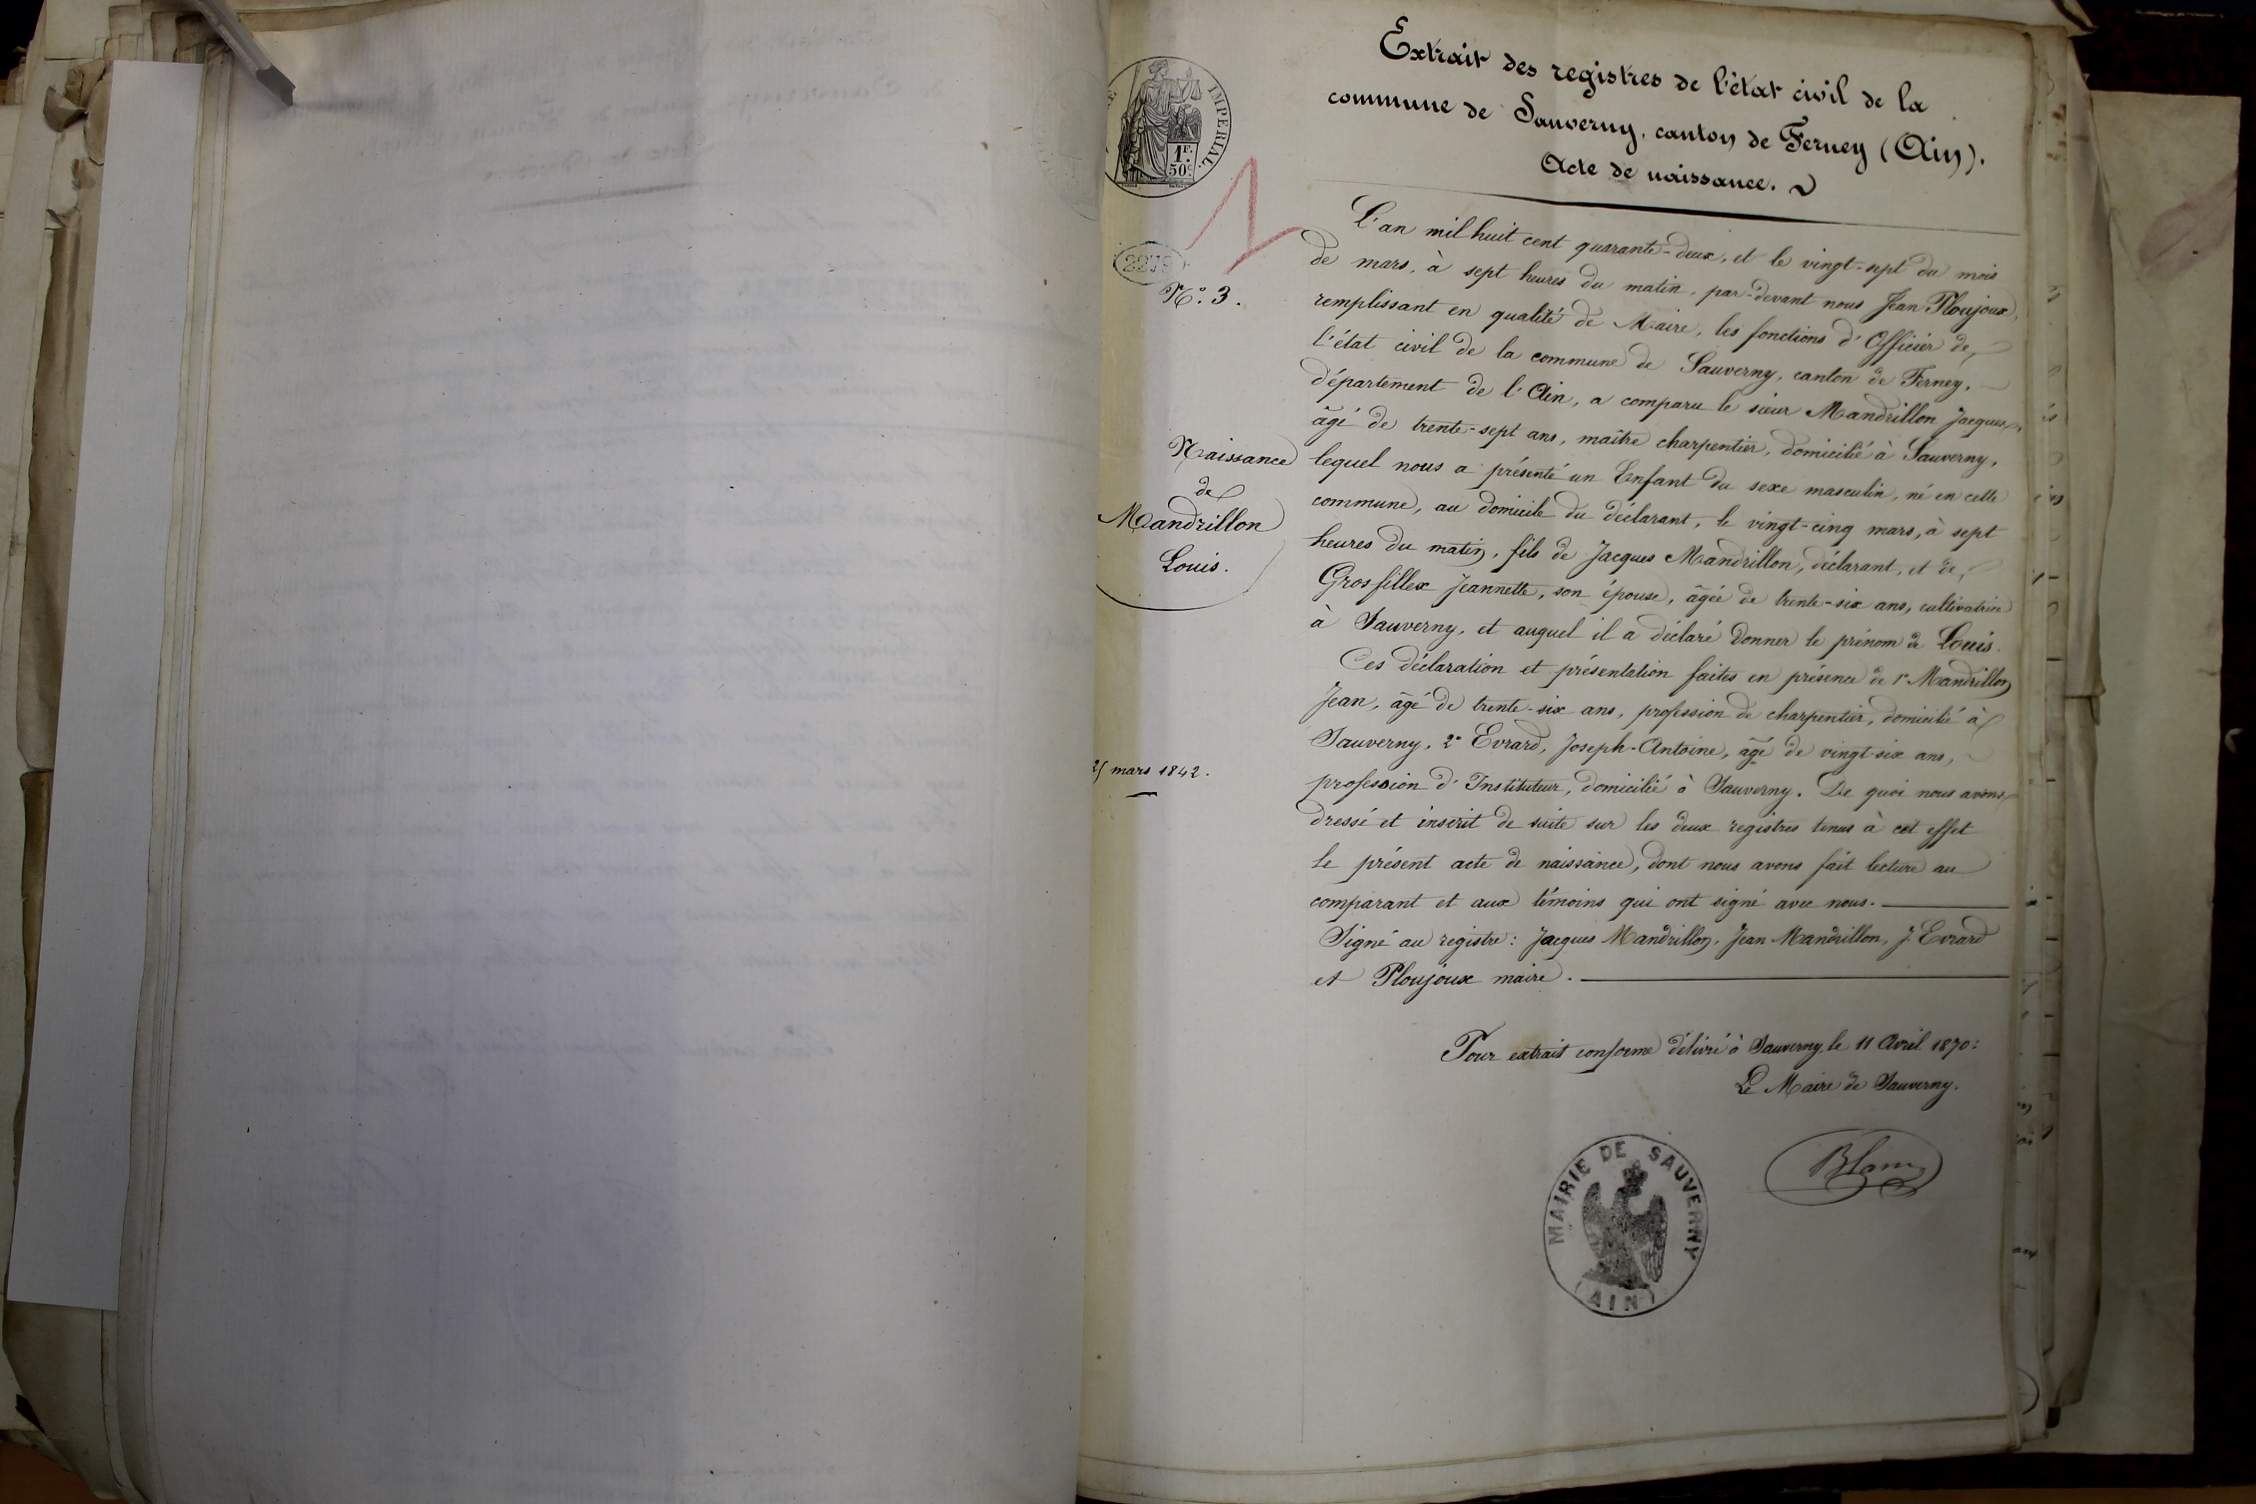 Extrait des registres de l'état civil de la
commune de Sauverny, canton de Ferney (Ain).
Acte de naissance.
IMPERIAL.
1F.
50c.
2279
N.º 3.
Naissance
de
Mandrillon
Louis.
25 mars 1842.
L'an mil huit cent quarante-deux, et le vingt-sept du mois
de mars, à sept heures du matin, par-devant nous Jean Ploujoux,
remplissant en qualité de Maire, les fonctions d'Officier de
l'état civil de la commune de Sauverny, canton de Ferney,
département de l'Ain, a comparu le sieur Mandrillon Jacques,
âgé de trente-sept ans, maître charpentier, domicilié à Sauverny,
lequel nous a présenté un Enfant du sexe masculin, né en cette
commune, au domicile du déclarant, le vingt-cinq mars, à sept
heures du matin, fils de Jacques Mandrillon, déclarant, et de
Grosfillex Jeannette, son épouse, âgée de trente-six ans, cultivatrice
à Sauverny, et auquel il a déclaré donner le prénom de Louis.
Ces déclaration et présentation faites en présence de 1º Mandrillon
Jean, âgé de trente-six ans, profession de charpentier, domicilié à
Sauverny, 2º Evrard, Joseph-Antoine, âgé de vingt-six ans,
profession d'Instituteur, domicilié à Sauverny. De quoi nous avons
dressé et inscrit de suite sur les deux registres tenus à cet effet
le présent acte de naissance, dont nous avons fait lecture au
comparant et aux témoins qui ont signé avec nous.
Signé au registre: Jacques Mandrillon, Jean Mandrillon, J. Evrard
et Ploujoux maire.
Pour extrait conforme délivré à Sauverny, le 11 Avril 1870:
Le Maire de Sauverny.
MAIRIE DE SAUVERNY
(AIN)